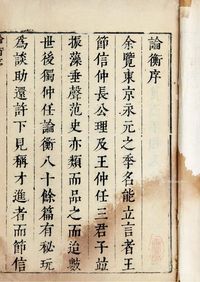 論衡序
余覽東京永元之季名能立言者王
節信仲長公理及王仲任三君子並
振藻垂聲范史亦類而品之而迨數
世後獨仲任論衡八十餘篇有秘玩
為談助還許下見稱才進者而節信